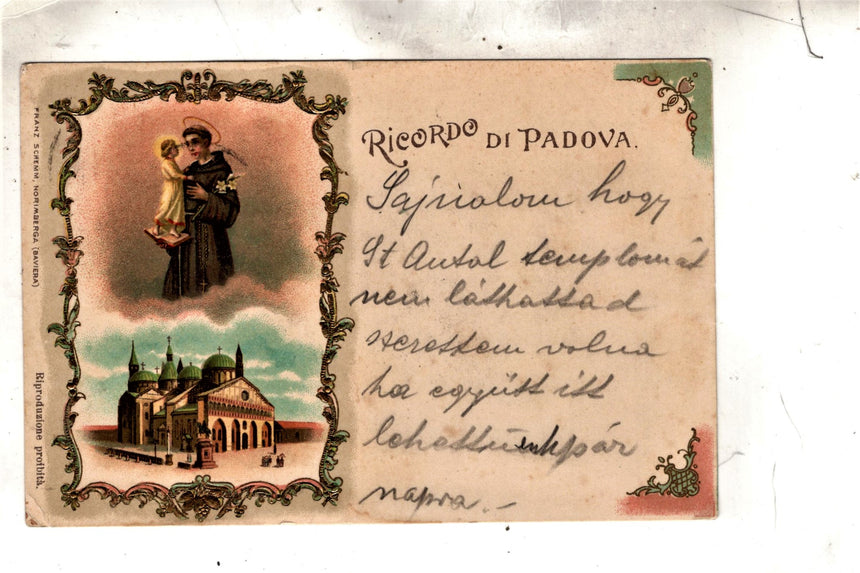 RICORDO DI PADOVA.
Sajnalom hogy
St Antal templomát
nem láthattad
szerettem volna
ha együtt itt
lehettünk pár
napra. -
FRANZ SCHEMM, NORIMBERGA (BAVIERA)
Riproduzione proibita.